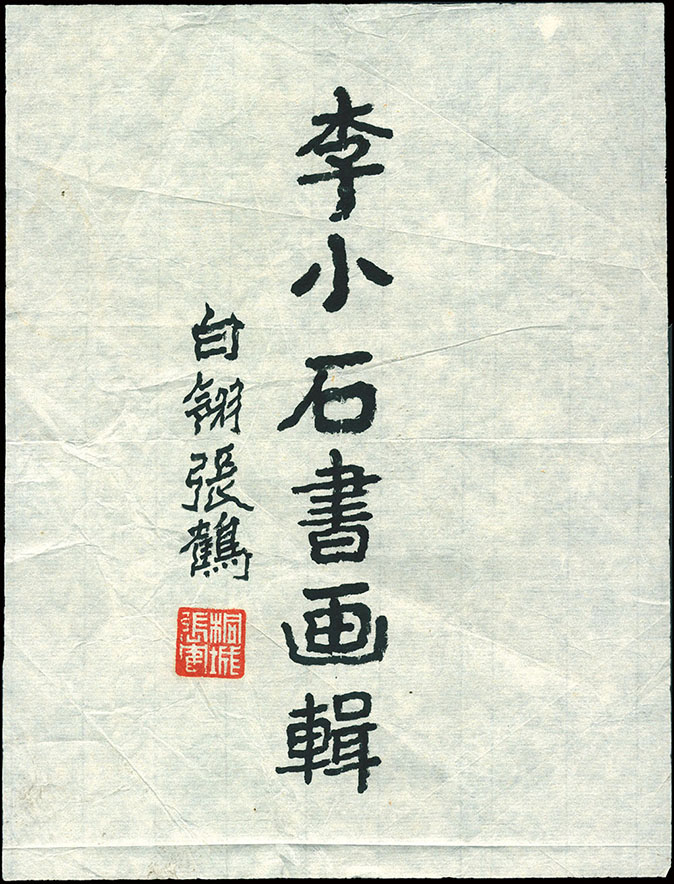 李小石書画輯
白翎張鶴
桐城
張